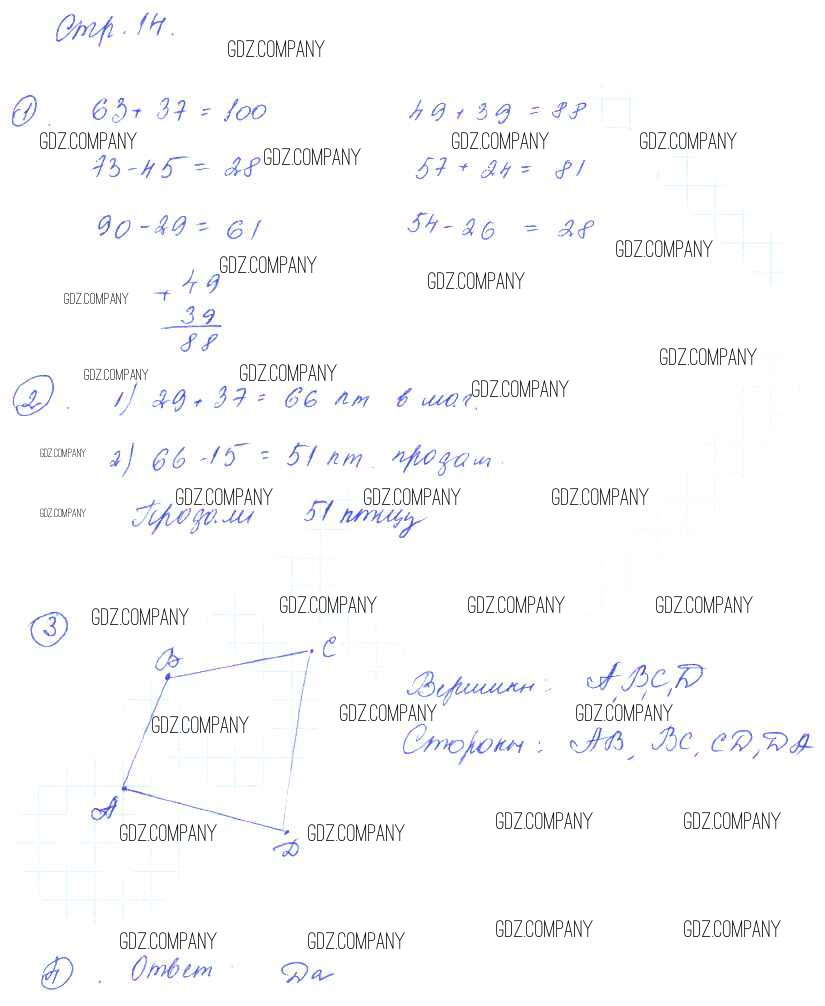 Стр. 14.
GDZ.COMPANY
1 63 + 37 = 100 49 + 39 = 88
GDZ.COMPANY GDZ.COMPANY GDZ.COMPANY GDZ.COMPANY
73 - 45 = 28 57 + 24 = 81
90 - 29 = 61 54 - 26 = 28
GDZ.COMPANY GDZ.COMPANY GDZ.COMPANY
+ 49
GDZ.COMPANY
39
88
GDZ.COMPANY
GDZ.COMPANY GDZ.COMPANY GDZ.COMPANY
2. 1) 29 + 37 = 66 пт в маг.
GDZ.COMPANY
2) 66 - 15 = 51 пт. продал.
GDZ.COMPANY GDZ.COMPANY GDZ.COMPANY
GDZ.COMPANY
Продали 51 птицу
GDZ.COMPANY GDZ.COMPANY GDZ.COMPANY GDZ.COMPANY
3
B C
Вершины: A, B, C, D
GDZ.COMPANY GDZ.COMPANY GDZ.COMPANY
Стороны: AB, BC, CD, DA
A
GDZ.COMPANY GDZ.COMPANY GDZ.COMPANY GDZ.COMPANY
D
GDZ.COMPANY GDZ.COMPANY GDZ.COMPANY GDZ.COMPANY
4. Ответ Да